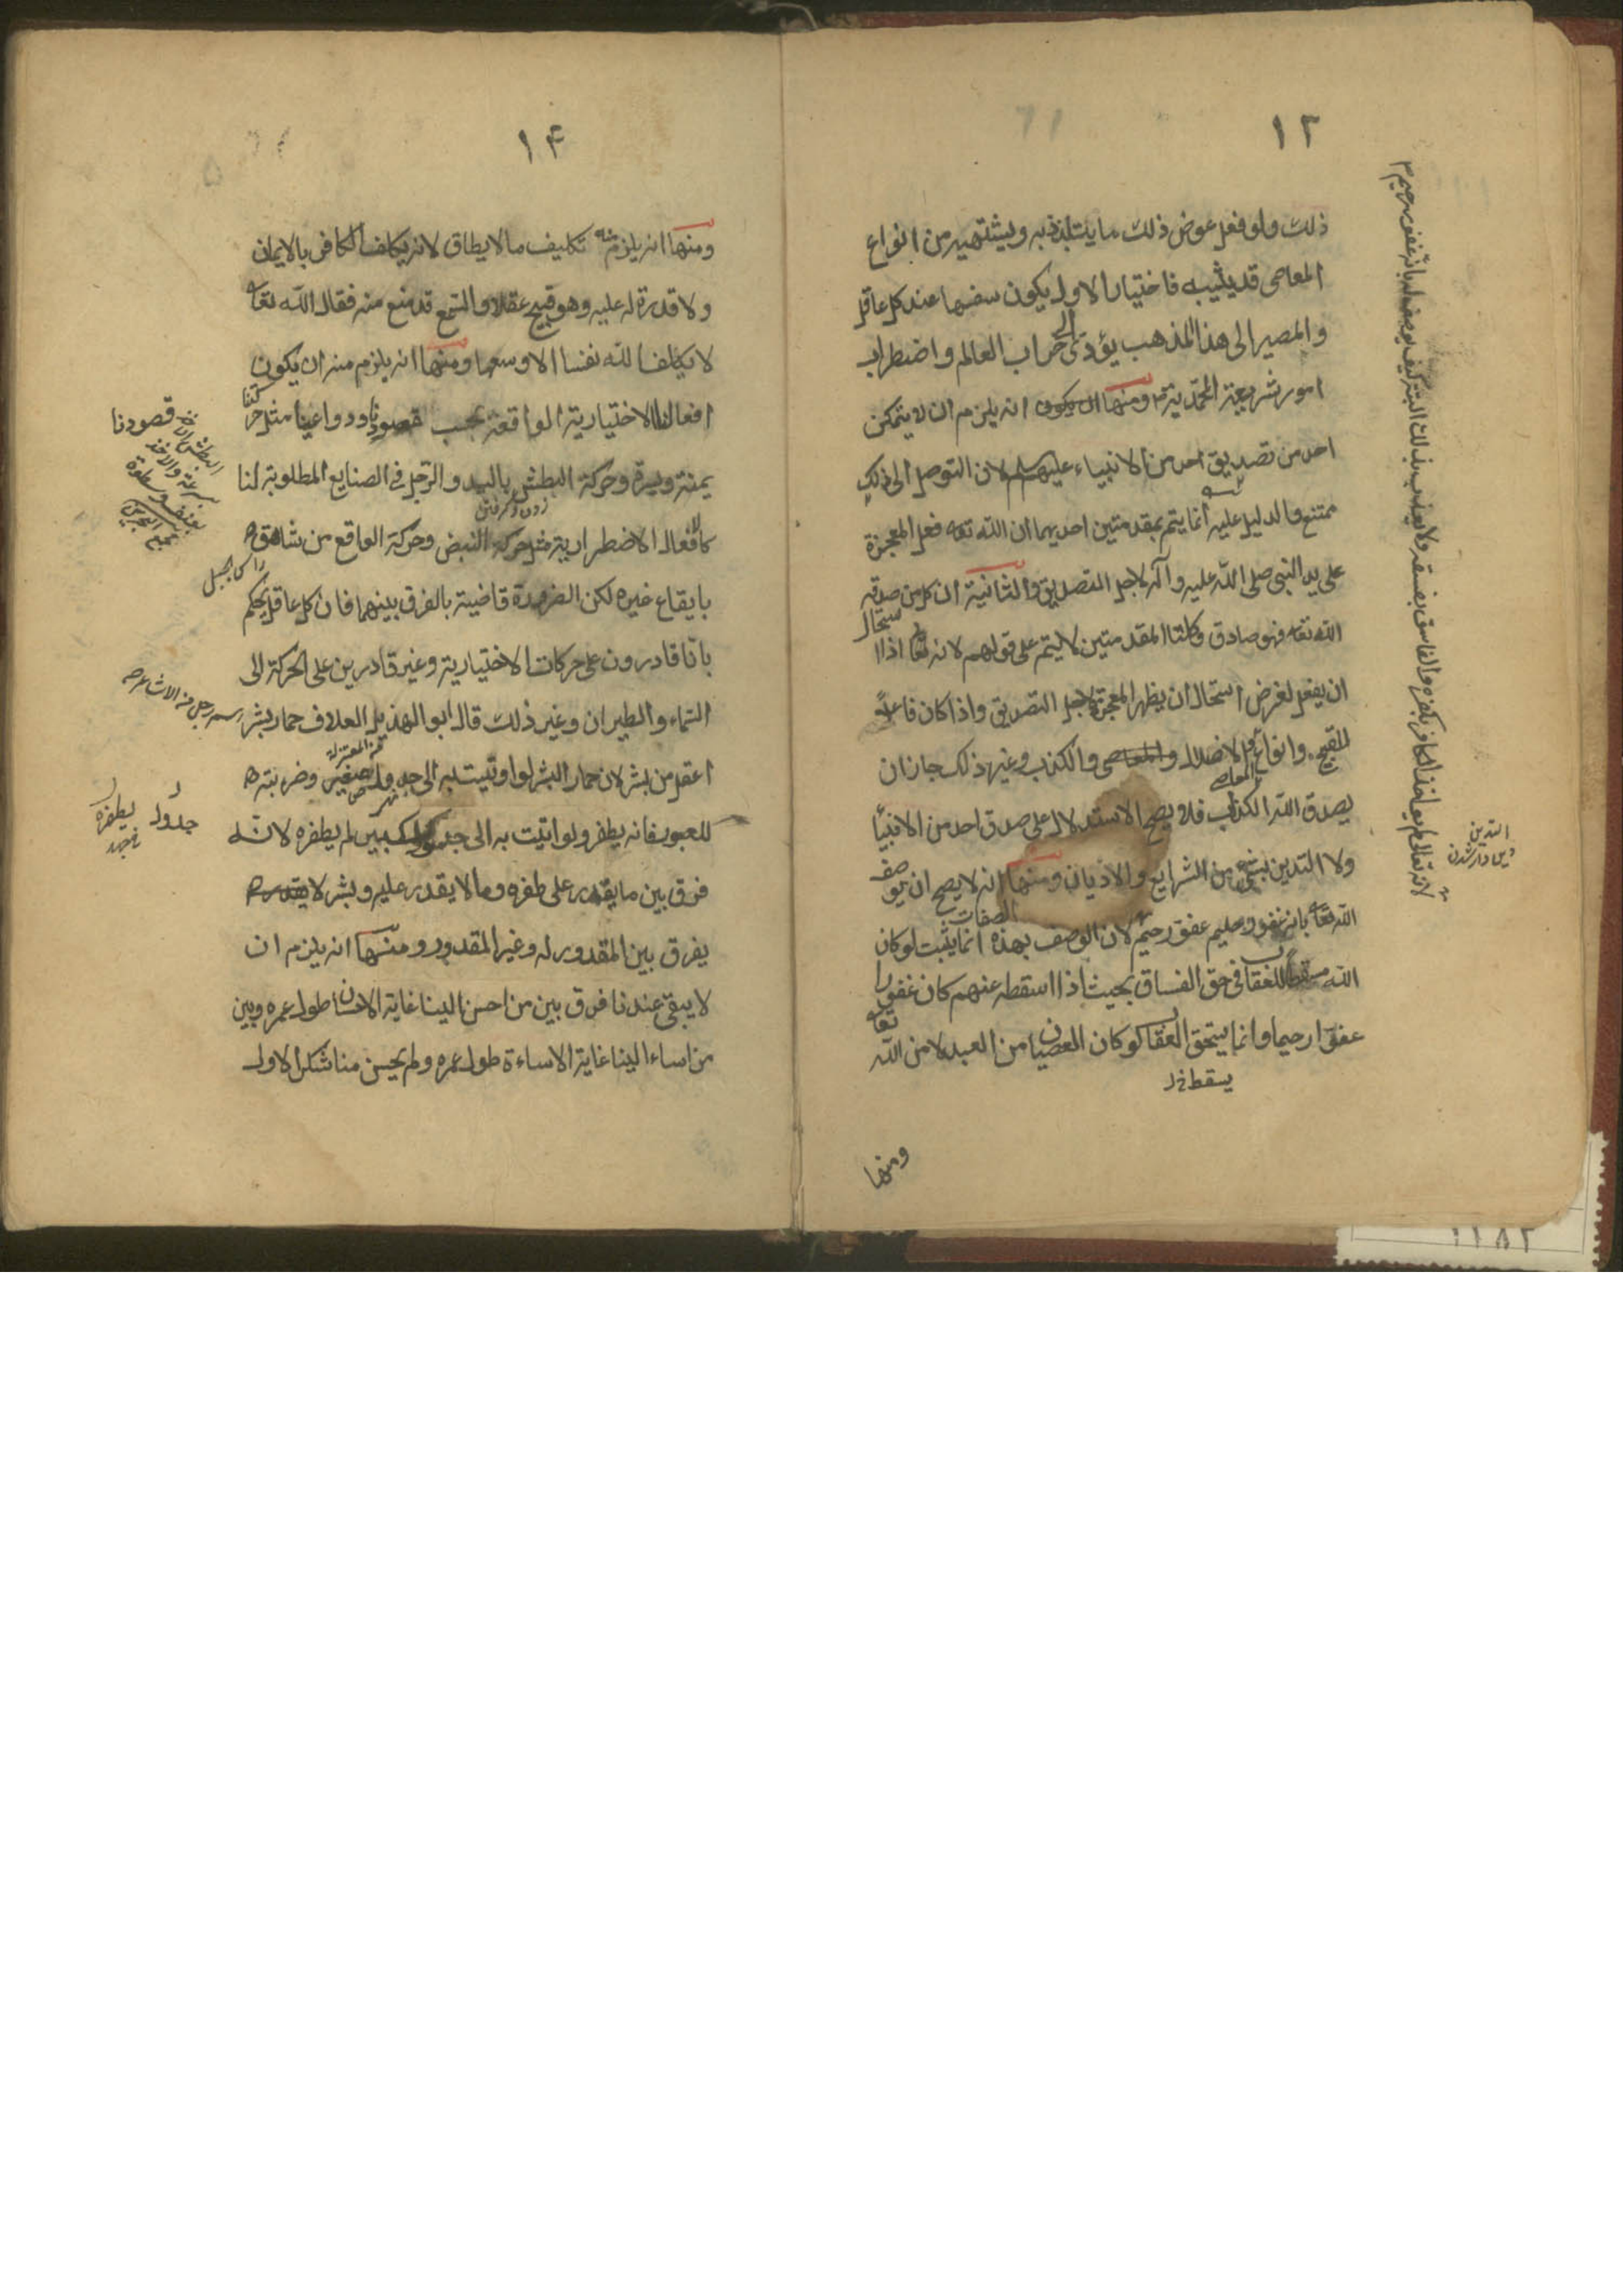 ١٣
ذلك ولو فعل عوض ذلك ما يتلذذ به ويشتهيه من انواع
المعاصى قد يثيبه فاختيار الاول يكون سفها عند كل عاقل
والمصير الى هذا المذهب يؤدى الى خراب العالم واضطراب
امور شريعة المحمدية ومنها انه يلزم ان لا يتمكن
احد من تصديق احد من الانبياء عليهم السلام لان التوصل الى ذلك
ممتنع والدليل عليه انما يتم بمقدمتين احديهما ان الله تعه فعل المعجزة
على يد النبى صلى الله عليه وآله لاجل التصديق والثانية ان كل من صدقه
الله تعه فهو صادق وكلتا المقدمتين لا يتم على قولهم لانه اذا استحال
ان يفعل لغرض استحال ان يظهر المعجزة لاجل التصديق واذا كان فاعلا
للقبيح وانواع الاضلال والمعاصى والكذب وغير ذلك جاز ان
يصدق الله الكذاب فلا يصح الاستدلال على صدق احد من الانبياء
ولا التدين بشئ من الشرايع والاديان ومنها انه لا يصح ان يوصف
الله تعا بانه غفور حليم عفو رحيم لان الوصف بهذه الصفات انما يثبت لو كان
الله مسقطا للعقاب فى حق الفساق بحيث اذا اسقطه عنهم كان غفورا
عفوا رحيما وانما يستحق العقاب لو كان العصيان من العبد لا من الله تعا
يسقط خ ل
ومنها
التدين
دين دار شدن
١۴
ومنها انه يلزم منه تكليف ما لا يطاق لانه يكلف الكافر بالايمان
ولا قدرة له عليه وهو قبيح عقلا والسمع قد منع منه فقال الله تعا
لا يكلف الله نفسا الا وسعها ومنها انه يلزم منه ان يكون
افعالنا الاختيارية الواقعة بحسب قصودنا ودواعينا مثل حركتنا
يمنة ويسرة وحركة البطش باليد والرجل فى الصنايع المطلوبة لنا
كالافعال الاضطرارية مثل حركة النبض وحركة الواقع من شاهق
بايقاع غيره لكن الضرورة قاضية بالفرق بينهما فان كل عاقل يحكم
بانا قادرون على حركات الاختيارية وغير قادرين على الحركة الى
السماء والطيران وغير ذلك قال ابو الهذيل العلاف حمار بشر
من المعتزلة
اعقل من بشر لان حمار البشر لو اوتيت به الى جدول صغير وضربته
نهر
للعبور فانه يطفر ولو اتيت به الى جدول كبير لم يطفره لانه
فرق بين ما يقدر على طفره وما لا يقدر عليه وبشر لا
يفرق بين المقدور له وغير المقدور ومنها انه يلزم ان
لا يبقى عندنا فرق بين من احسن الينا غاية الاحسان طول عمره وبين
من اساء الينا غاية الاساءة طول عمره ولم يحسن منا شكر الاول
قصودنا
راس جبل
اسم رجل من الاشاعره
جدول
يطفره